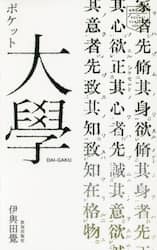 家者先脩其身欲脩其身者先正
其心欲正其心者先誠其意欲誠
其意者先致其知致知在格物。
ポケット
大學
DAI-GAKU
伊與田覺
致知出版社